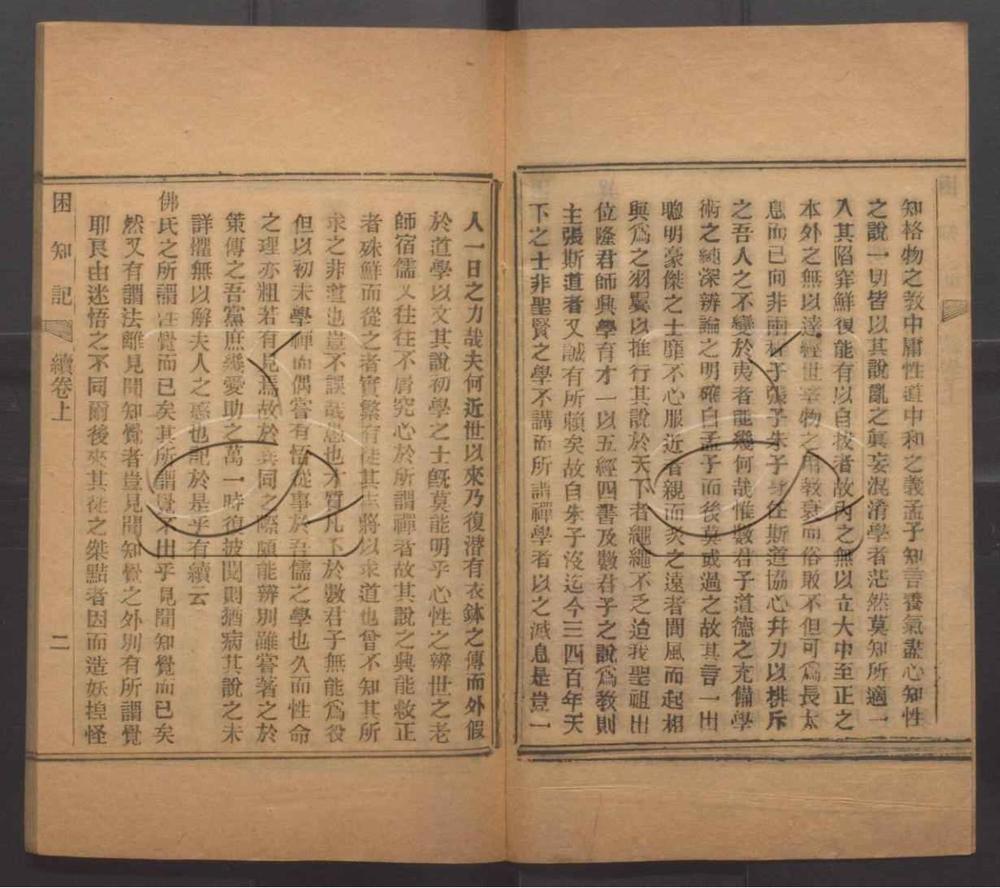 知格物之教中庸性道中和之義孟子知言養氣盡心知性
之說一切皆以其說亂之眞妄混淆學者茫然莫知所適一
入其陷穽鮮復能有以自拔者故內之無以立大中至正之
本外之無以達經世宰物之用敎衰而俗敗不但可爲長太
息而已向非兩程子張子朱子身任斯道協心幷力以排斥
之吾人之不變於夷者能幾何哉惟數君子道德之充備學
術之純深辨論之明確自孟子而後莫或過之故其言一出
聰明豪傑之士靡不心服近者親而炙之遠者聞風而起相
與爲之羽翼以推行其說於天下者繩繩不乏迨我聖祖出
位隆君師興學育才一以五經四書及數君子之說爲教則
主張斯道者又誠有所賴矣故自朱子沒迄今三四百年天
下之士非聖賢之學不講而所謂禪學者以之滅息是豈一
人一日之力哉夫何近世以來乃復潛有衣鉢之傳而外假
於道學以文其說初學之士旣莫能明乎心性之辨世之老
師宿儒又往往不屑究心於所謂禪者故其說之興能救正
者殊鮮而從之者實繁有徒其志將以求道也曾不知其所
求之非道也豈不誤哉愚也才質凡下於數君子無能爲役
但以初未學禪而偶嘗有悟從事於吾儒之學也久而性命
之理亦粗若有見焉故於異同之際頗能辨別雖嘗著之於
策傳之吾黨庶幾愛助之萬一時復披閱則猶病其說之未
詳懼無以解夫人之惑也記於是乎有續云
佛氏之所謂性覺而已矣其所謂覺不出乎見聞知覺而已矣
然又有謂法離見聞知覺者豈見聞知覺之外別有所謂覺
耶良由迷悟之不同爾後來其徒之桀黠者因而造妖揑怪
困知記 續卷上 二